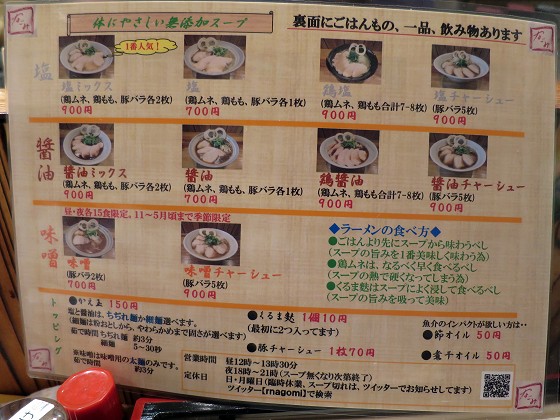 体にやさしい無添加スープ
裏面にごはんもの、一品、飲み物あります
なごみ
1番人気！
塩
塩ミックス
(鶏ムネ、鶏もも、豚バラ各2枚)
900円
塩
(鶏ムネ、鶏もも、豚バラ各1枚)
700円
鶏塩
(鶏ムネ、鶏もも合計7-8枚)
900円
塩チャーシュー
(豚バラ5枚)
900円
醤油
醤油ミックス
(鶏ムネ、鶏もも、豚バラ各2枚)
900円
醤油
(鶏ムネ、鶏もも、豚バラ各1枚)
700円
鶏醤油
(鶏ムネ、鶏もも合計7-8枚)
900円
醤油チャーシュー
(豚バラ5枚)
900円
昼・夜各15食限定、11～5月頃まで季節限定
味噌
味噌
(豚バラ2枚)
700円
味噌チャーシュー
(豚バラ5枚)
900円
◆ラーメンの食べ方◆
●ごはんより先にスープから味わうべし
(スープの旨みを1番美味しく味わう為)
●鶏ムネは、なるべく早く食べるべし
(スープの熱で硬くなってしまう為)
●くるま麩はスープによく浸して食べるべし
(スープの旨みを吸って美味)
トッピング
●かえ玉 150円
塩と醤油は、ちぢれ麺か細麺選べます。
(細麺は粉おとしから、やわらかめまで固さが選べます)
茹で時間ちぢれ麺 約3分
細麺 5～30秒
※味噌は味噌用の太麺のみです。
茹で時間 約3分
●くるま麩 1個10円
(最初に2つ入ってます)
●豚チャーシュー 1枚70円
魚介のインパクトが欲しい方は‥
●節オイル 50円
●煮干オイル 50円
営業時間 昼12時～13時30分
夜18時～21時(スープ無くなり次第終了)
定休日 日・月曜日(臨時休業、スープ切れは、ツイッターでお知らせしてます)
ツイッター【rnagomi】で検索